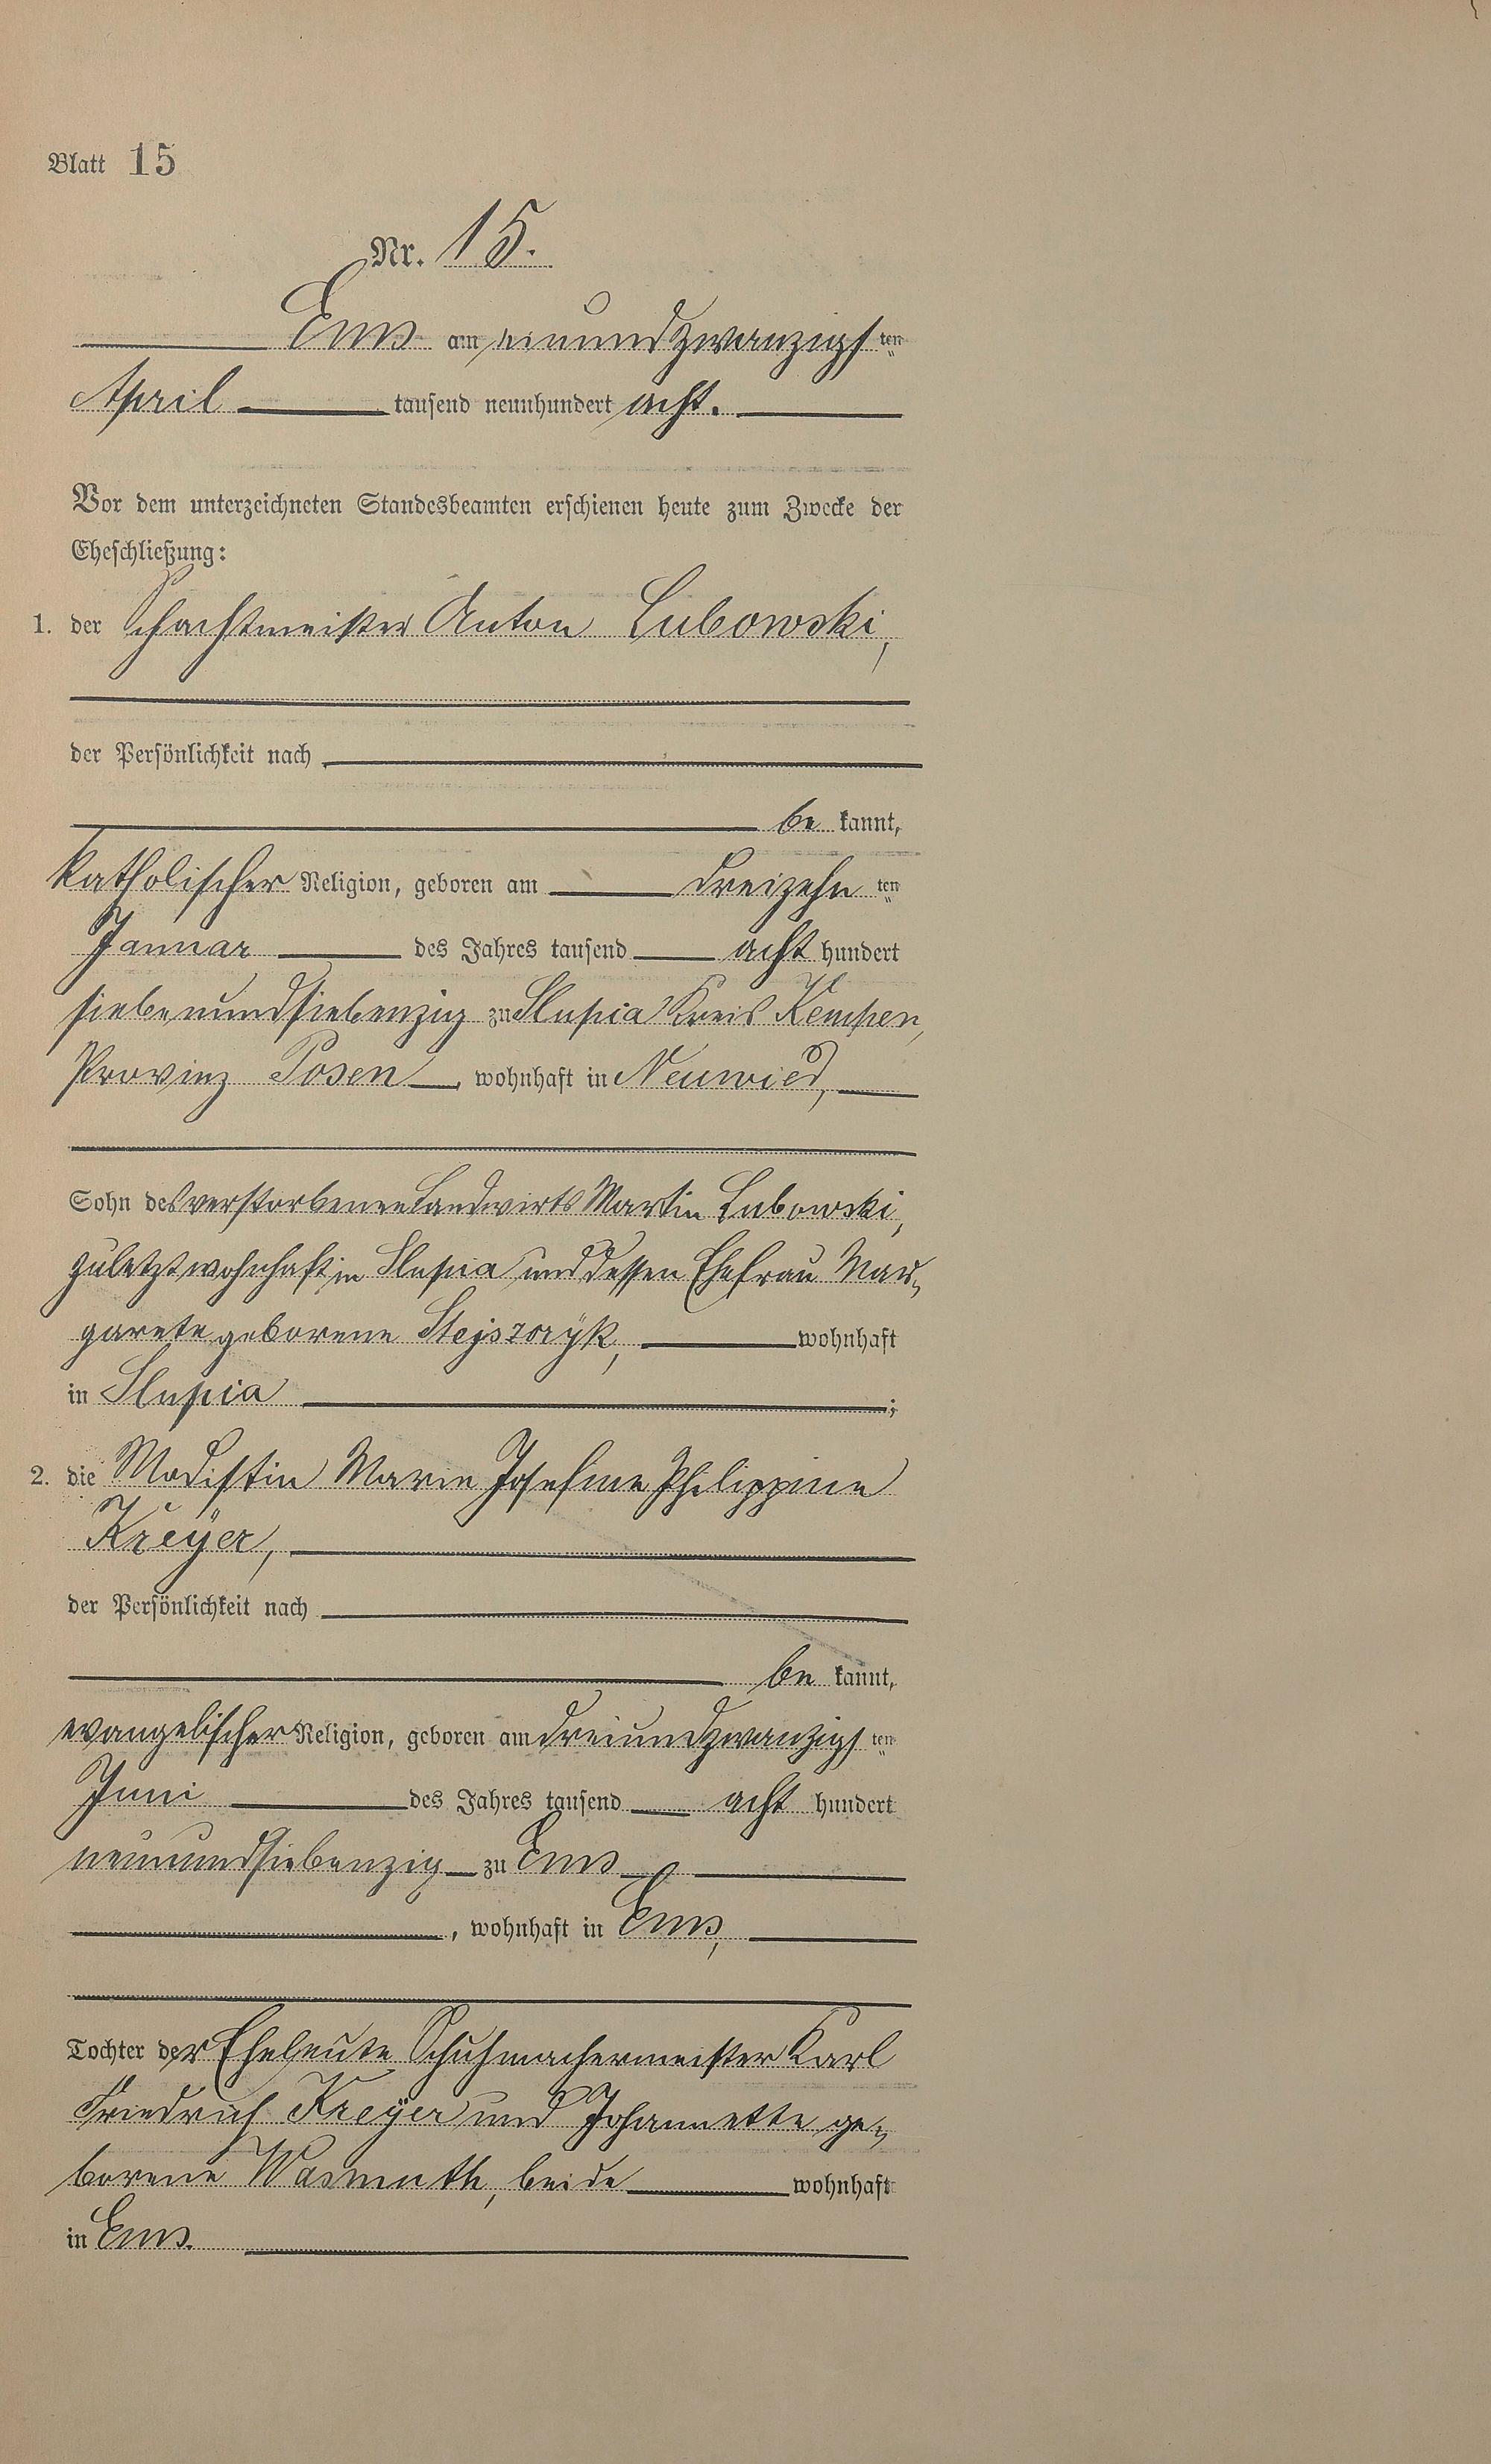 Blatt 15
Nr. 15.
Ems am einundzwanzigs ten
April tausend neunhundert acht.
Vor dem unterzeichneten Standesbeamten erschienen heute zum Zwecke der
Eheschließung:
1. der Schachtmeister Anton Lubowski,
der Persönlichkeit nach
be kannt,
katholischer Religion, geboren am dreizehn ten
Januar des Jahres tausend acht hundert
siebenundsiebenzig zu Slupia Kreis Kempen,
Provinz Posen, wohnhaft in Neuwied,
Sohn des verstorbenen Landwirts Martin Lubowski,
zuletzt wohnhaft in Slupia und dessen Ehefrau Mar-
garete geborene wohnhaft
in Slupia ;
2. die Modistin Marie Josefine Philippine
Kreÿer,
der Persönlichkeit nach
be kannt,
evangelischer Religion, geboren am dreiundzwanzigs ten
Juni des Jahres tausend acht hundert
neunundsiebenzig zu Ems
, wohnhaft in Ems,
Tochter der Eheleute Schuhmachermeister Karl
Friedrich Kreÿer und Johannette ge-
borene Wasmuth, beide wohnhaft
in Ems.